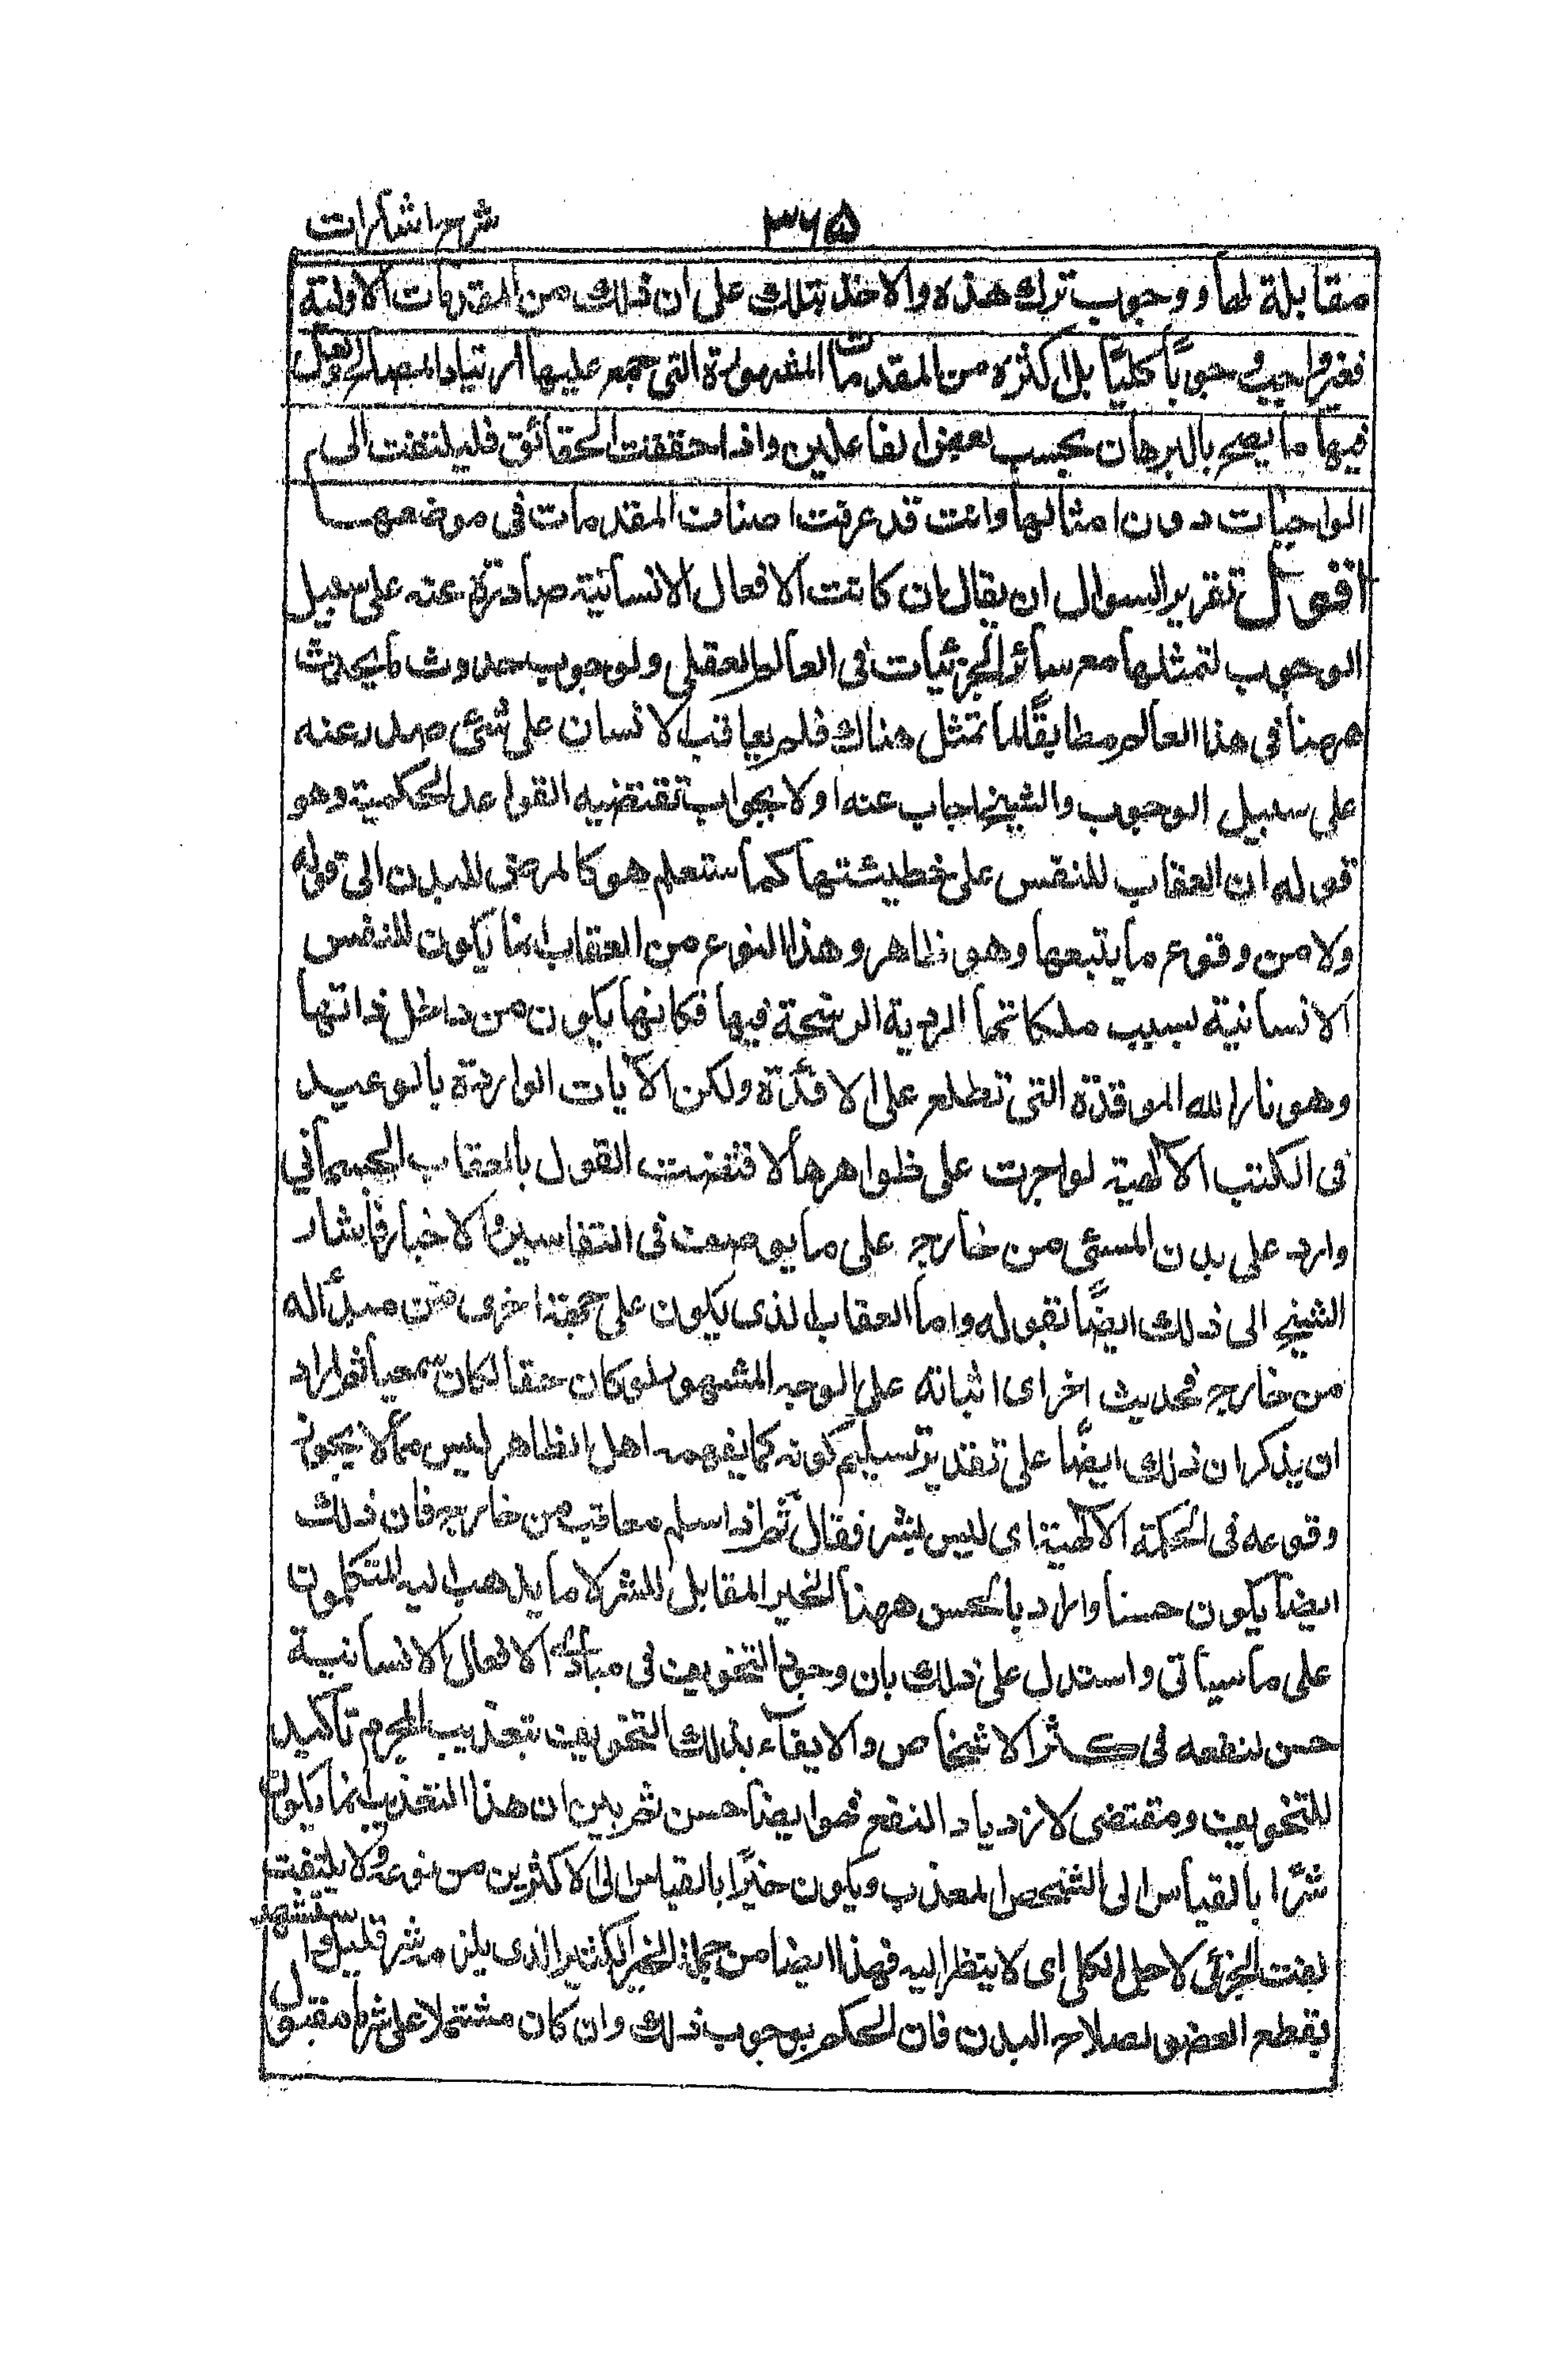 ۳۶۵ شرح اشارات
مقابلة لها و وجوب ترك هذه والاخذ بتلك على ان ذلك من المقدمات الاولية
فغير واجب وجوباً كلياً بل اكثره من المقدمات المشهورة التي جمع عليها ارتياد المصالح ولعل
فيها ما يصح بالبرهان بحسب بعض الفاعلين واذا حققت الحقائق فليلتفت الى
الواجبات دون امثالها وانت قد عرفت اصناف المقدمات في موضعها
اقول تقرير السوال ان يقال ان كانت الافعال الانسانية صادرة عنه على سبيل
الوجوب لتمثلها مع سائر الجزئيات في العالم العقلي ولوجوب حدوث ما يحدث
ههنا في هذا العالم مطابقاً لما تمثل هناك فلم يعاقب الانسان على شئ صدر عنه
على سبيل الوجوب والشيخ اجاب عنه اولا بجواب تقتضيه القواعد الحكمية وهو
قوله ان العقاب للنفس على خطيئتها كما ستعلم هو كالمرض للبدن الى قوله
ولا من وقوع ما يتبعها وهو ظاهر وهذا النوع من العقاب انما يكون للنفس
الانسانية بسبب ملكاتها الردية الراسخة فيها فكانها يكون من داخل ذاتها
وهو نار الله الموقدة التي تطلع على الافئدة ولكن الآيات الواردة بالوعيد
في الكتب الآلهية لو اجريت على ظواهرها لاقتضت القول بالعقاب الجسماني
وارد على بدن المسئ من خارج على ما يوصف في التفاسير والاخبار فاشار
الشيخ الى ذلك ايضاً بقوله واما العقاب الذى يكون على جهة اخرى من مبدأ له
من خارج فحديث اخر اى اثباته على الوجه المشهور لو كان حقا لكان سمعيا ثم اراد
ان يذكر ان ذلك ايضاً على تقدير تسليم كونه كما يفهمه اهل الظاهر ليس مما لا يجوز
وقوعه في الحكمة الآلهية اى ليس بشر فقال ثم اذا سلم معاقب من خارج فان ذلك
ايضا يكون حسنا واراد بالحسن ههنا الخير المقابل للشر لا ما يذهب اليه المتكلمون
على ما سيأتى واستدل على ذلك بان وجود التخويف في مبادى الافعال الانسانية
حسن لنفعه في اكثر الاشخاص والايفاء بذلك التخويف بتعذيب المجرم تاكيد
للتخويف ومقتضى لازدياد النفع فهو ايضا حسن ثم بين ان هذا التعذيب انما يكون
شرًا بالقياس الى الشخص المعذب ويكون خيرًا بالقياس الى الاكثرين من نوعه ولا يلتفت
لفت الجزئى لاجل الكلى اى لا ينظر اليه فهذا ايضا من جملة الخير الكثير الذى يلزمه شر قليل واستشهد
بقطع العضو لصلاح البدن فان الحكم بوجوب ذلك وان كان مشتملا على شر ما مقبول